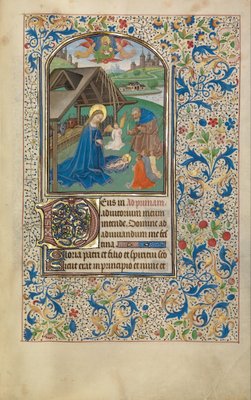 Deus in ad primam.
adiutorium meum
intende. Domine ad
adiuuandum me fes
tina
Gloria patri et filio et spiritui sco
Sicut erat in principio et nunc et